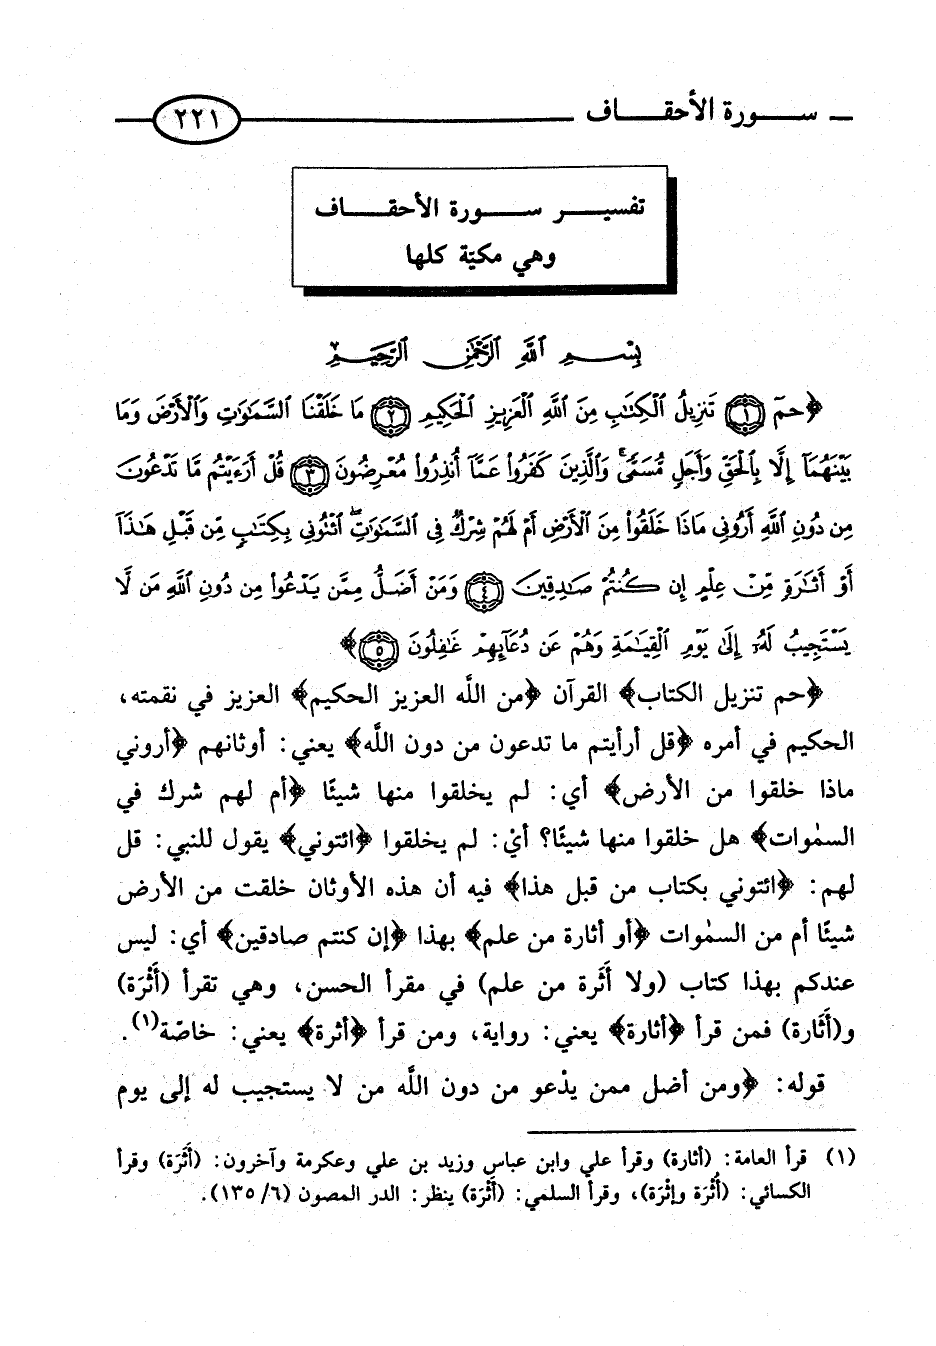 سـورة الأحقـاف ٢٢١
تفسيـر سـورة الأحقـاف
وهي مكيّة كلها
بِسْمِ ٱللَّهِ ٱلرَّحْمَٰنِ ٱلرَّحِيمِ
﴿حمٓ ١ تَنزِيلُ ٱلْكِتَٰبِ مِنَ ٱللَّهِ ٱلْعَزِيزِ ٱلْحَكِيمِ ٢ مَا خَلَقْنَا ٱلسَّمَٰوَٰتِ وَٱلْأَرْضَ وَمَا
بَيْنَهُمَآ إِلَّا بِٱلْحَقِّ وَأَجَلٍ مُّسَمًّى ۚ وَٱلَّذِينَ كَفَرُوا۟ عَمَّآ أُنذِرُوا۟ مُعْرِضُونَ ٣ قُلْ أَرَءَيْتُم مَّا تَدْعُونَ
مِن دُونِ ٱللَّهِ أَرُونِى مَاذَا خَلَقُوا۟ مِنَ ٱلْأَرْضِ أَمْ لَهُمْ شِرْكٌ فِى ٱلسَّمَٰوَٰتِ ۖ ٱئْتُونِى بِكِتَٰبٍ مِّن قَبْلِ هَٰذَآ
أَوْ أَثَٰرَةٍ مِّنْ عِلْمٍ إِن كُنتُمْ صَٰدِقِينَ ٤ وَمَنْ أَضَلُّ مِمَّن يَدْعُوا۟ مِن دُونِ ٱللَّهِ مَن لَّا
يَسْتَجِيبُ لَهُۥٓ إِلَىٰ يَوْمِ ٱلْقِيَٰمَةِ وَهُمْ عَن دُعَآئِهِمْ غَٰفِلُونَ ٥﴾
﴿حم تنزيل الكتاب﴾ القرآن ﴿من اللَّه العزيز الحكيم﴾ العزيز في نقمته،
الحكيم في أمره ﴿قل أرأيتم ما تدعون من دون اللَّه﴾ يعني: أوثانهم ﴿أروني
ماذا خلقوا من الأرض﴾ أي: لم يخلقوا منها شيئًا ﴿أم لهم شرك في
السمٰوات﴾ هل خلقوا منها شيئًا؟ أيْ: لم يخلقوا ﴿ائتوني﴾ يقول للنبي: قل
لهم: ﴿ائتوني بكتاب من قبل هذا﴾ فيه أن هذه الأوثان خلقت من الأرض
شيئًا أم من السمٰوات ﴿أو أثارة من علم﴾ بهذا ﴿إن كنتم صادقين﴾ أي: ليس
عندكم بهذا كتاب (ولا أَثَرة من علم) في مقرأ الحسن، وهي تقرأ (أَثْرَة)
و(أَثَارة) فمن قرأ ﴿أثارة﴾ يعني: رواية، ومن قرأ ﴿أثرة﴾ يعني: خاصّة(١).
قوله: ﴿ومن أضل ممن يدْعو من دون اللَّه من لا يستجيب له إلى يوم
(١) قرأ العامة: (أثارة) وقرأ علي وابن عباس وزيد بن علي وعكرمة وآخرون: (أَثَرَة) وقرأ
الكسائي: (أُثْرَة وإثْرَة)، وقرأ السلمي: (أَثْرَة) ينظر: الدر المصون (٦/ ١٣٥).